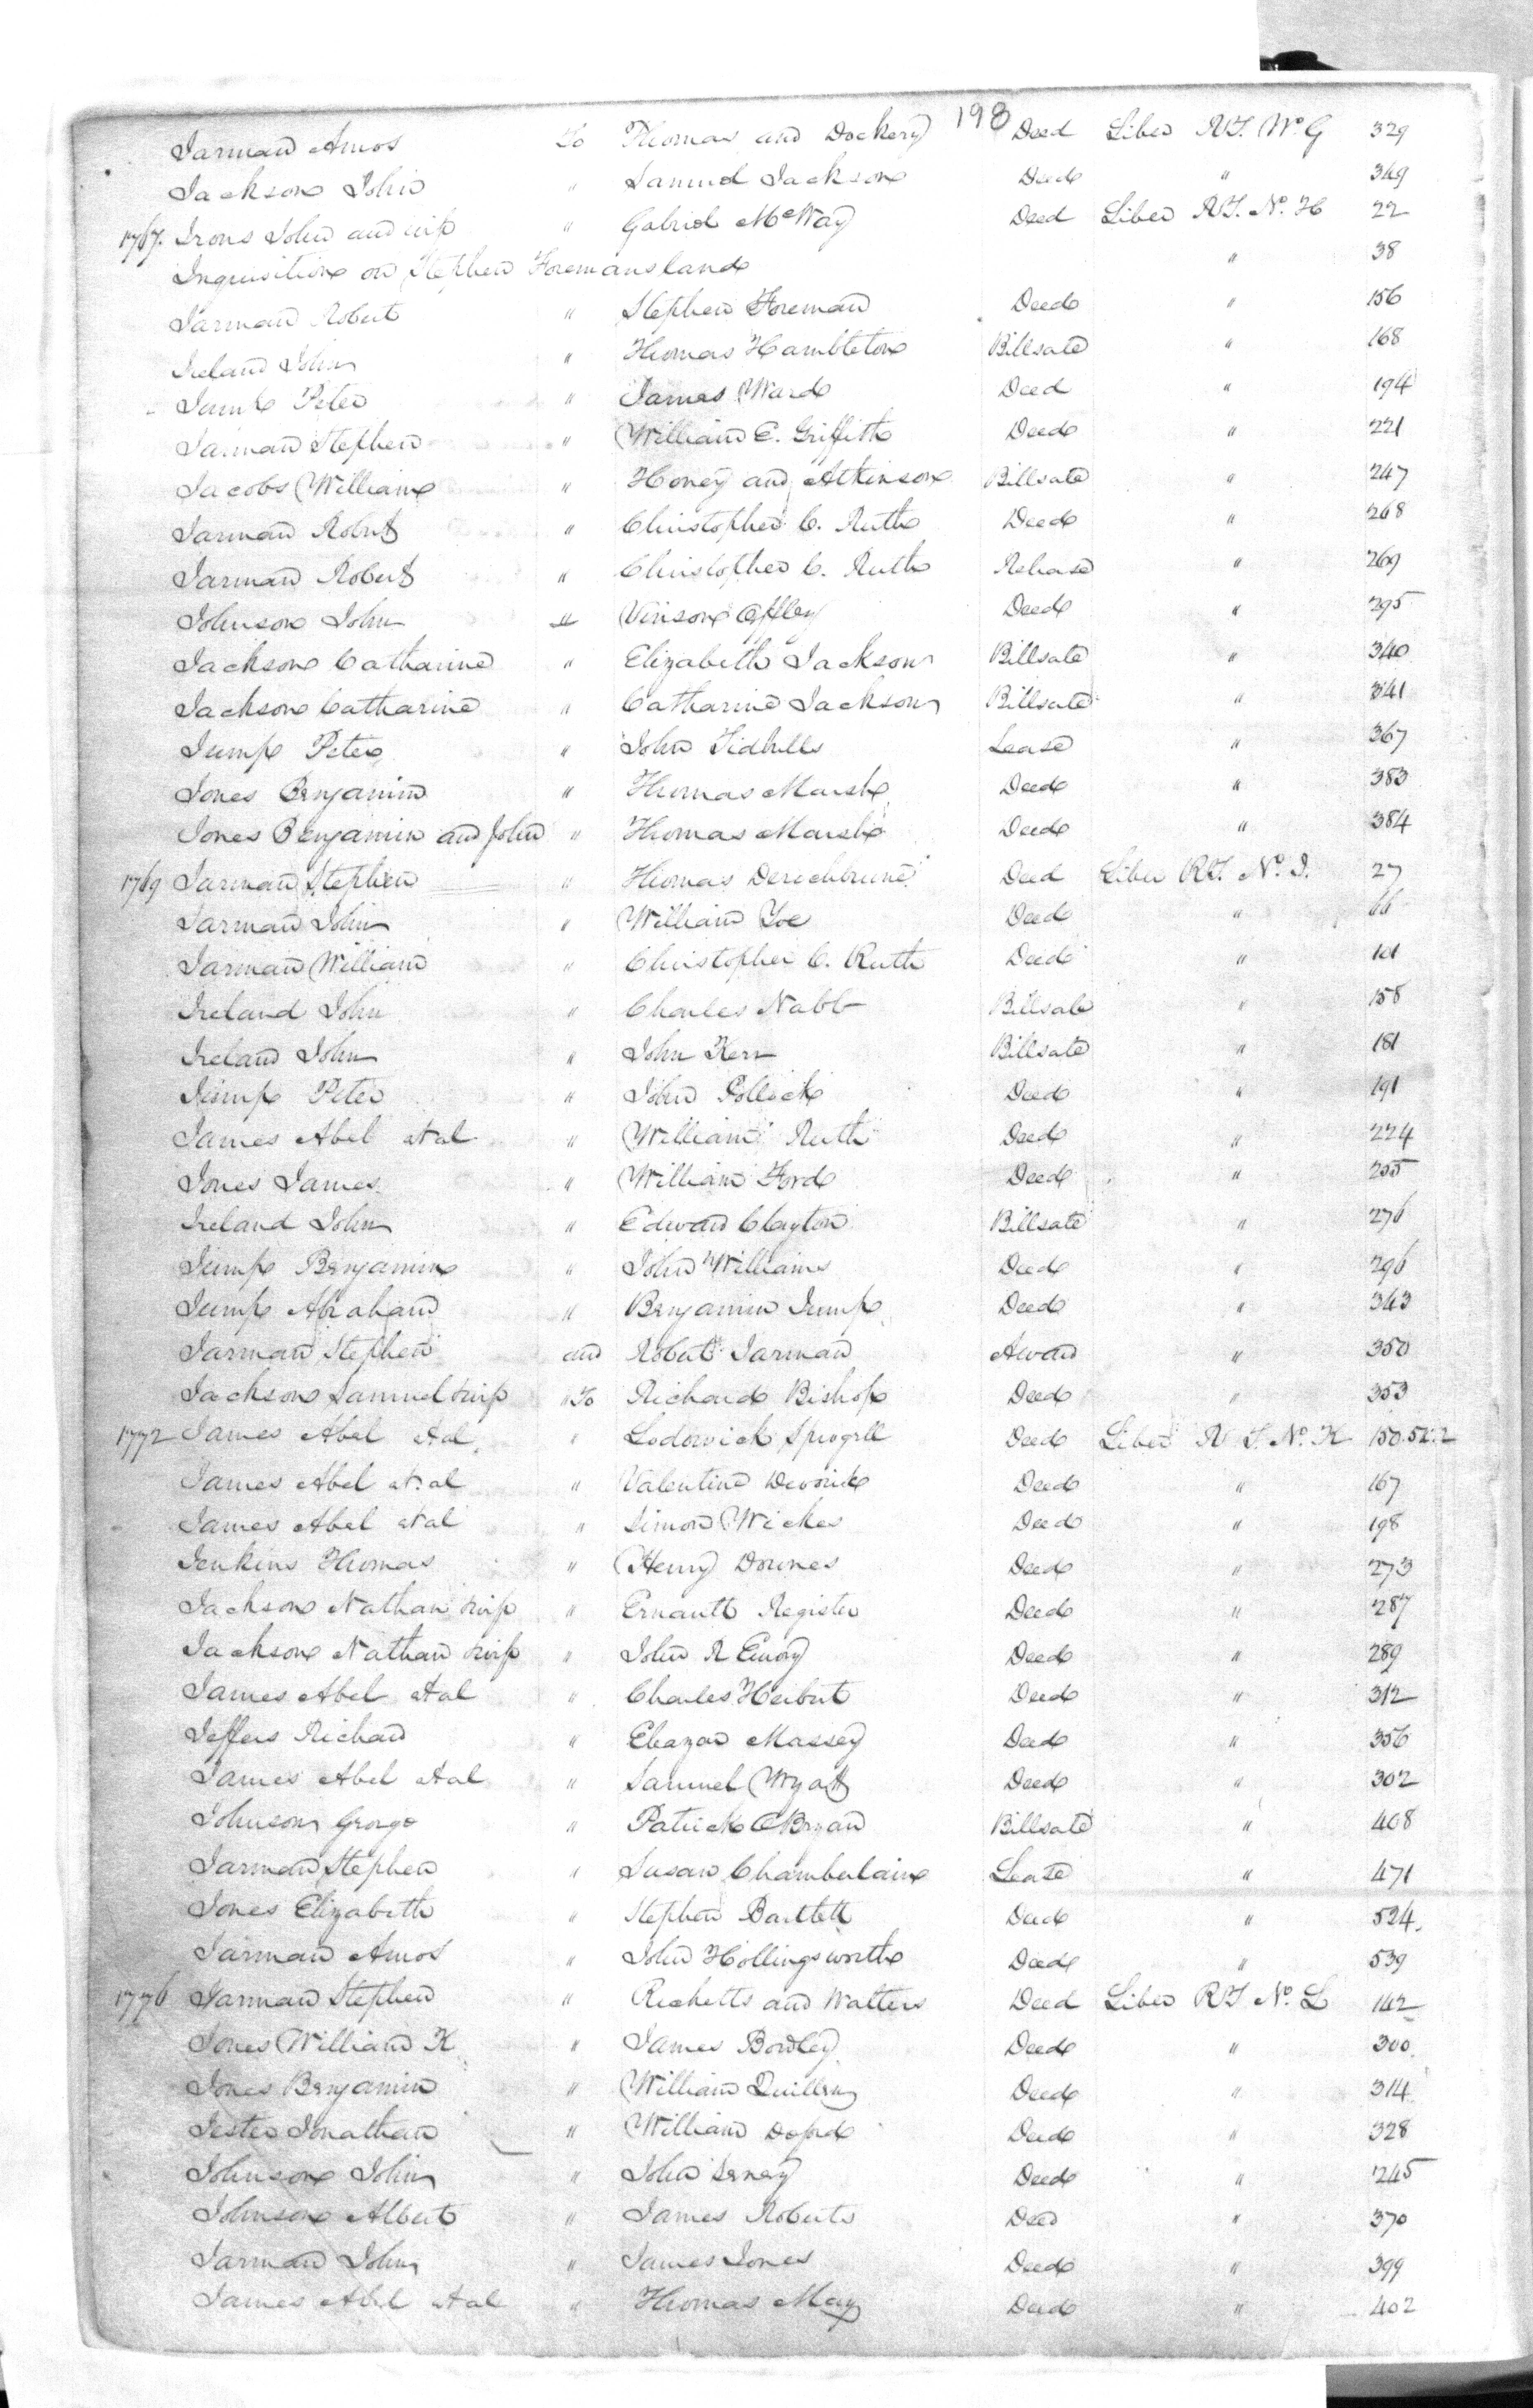 198
Jarman Amos To Thomas and Dockery Deed Liber R.T. No. G 329
Jackson John " Samuel Jackson Deed " 349
1767. Irons John and wife " Gabriel McWay Deed Liber R.T. No. H 22
Inquisition on Stephen Foremans land " 38
Jarman Robert " Stephen Foreman Deed " 156
Ireland John " Thomas Hambleton Billsale " 168
Jump Peter " James Ward Deed " 194
Jarman Stephen " William E. Griffith Deed " 221
Jacobs William " Honey and Atkinson Billsale " 247
Jarman Robert " Christopher C. Ruth Deed " 268
Jarman Robert " Christopher C. Ruth Release " 269
Johnson John " Vinson Offley Deed " 295
Jackson Catharine " Elizabeth Jackson Billsale " 340
Jackson Catharine " Catharine Jackson Billsale " 341
Jump Peter " John Tidhills Lease " 367
Jones Benjamin " Thomas Marsh Deed " 383
Jones Benjamin and John " Thomas Marsh Deed " 384
1769 Jarman Stephen " Thomas Derochbrune Deed Liber R.T. No. I. 27
Jarman John " William Yoe Deed " 66
Jarman William " Christopher C. Ruth Deed " 101
Ireland John " Charles Nabb Billsale " 158
Ireland John " John Kerr Billsale " 181
Jump Peter " John Pollick Deed " 191
James Abel et al " William Ruth Deed " 224
Jones James " William Ford Deed " 255
Ireland John " Edward Clayton Billsale " 276
Jump Benjamin " John Williams Deed " 296
Jump Abraham " Benjamin Jump Deed " 343
Jarman Stephen and Robert Jarman Award " 350
Jackson Samuel & wife " To Richard Bishop Deed " 353
1772 James Abel et al " Lodowick Sprogell Deed Liber R.T. No. K 150.
James Abel et al " Valentine Deed " 167
James Abel et al " Simon Wickes Deed " 198
Jenkins Thomas " Henry Downes Deed " 273
Jackson Nathan & wife " Ernault Register Deed " 287
Jackson Nathan & wife " John R Emory Deed " 289
James Abel et al " Charles Heibert Deed " 312
Jeffers Richard " Eleazar Massey Deed " 356
James Abel et al " Samuel Wyatt Deed " 302
Johnson George " Patrick OBryan Billsale " 408
Jarman Stephen " Susan Chamberlaine Lease " 471
Jones Elizabeth " Stephen Bartlett Deed " 524.
Jarman Amos " John Hollingsworth Deed " 539
1776 Jarman Stephen " Ricketts and Walters Deed Liber R.T. No. L 142
Jones William K " James Bordley Deed " 300.
Jones Benjamin " William Quillen Deed " 314
Jester Jonathan " William Deford Deed " 328
Johnson John " John Seney Deed " 245
Johnson Albert " James Roberts Deed " 370
Jarman John " James Jones Deed " 399
James Abel et al " Thomas May Deed " 402